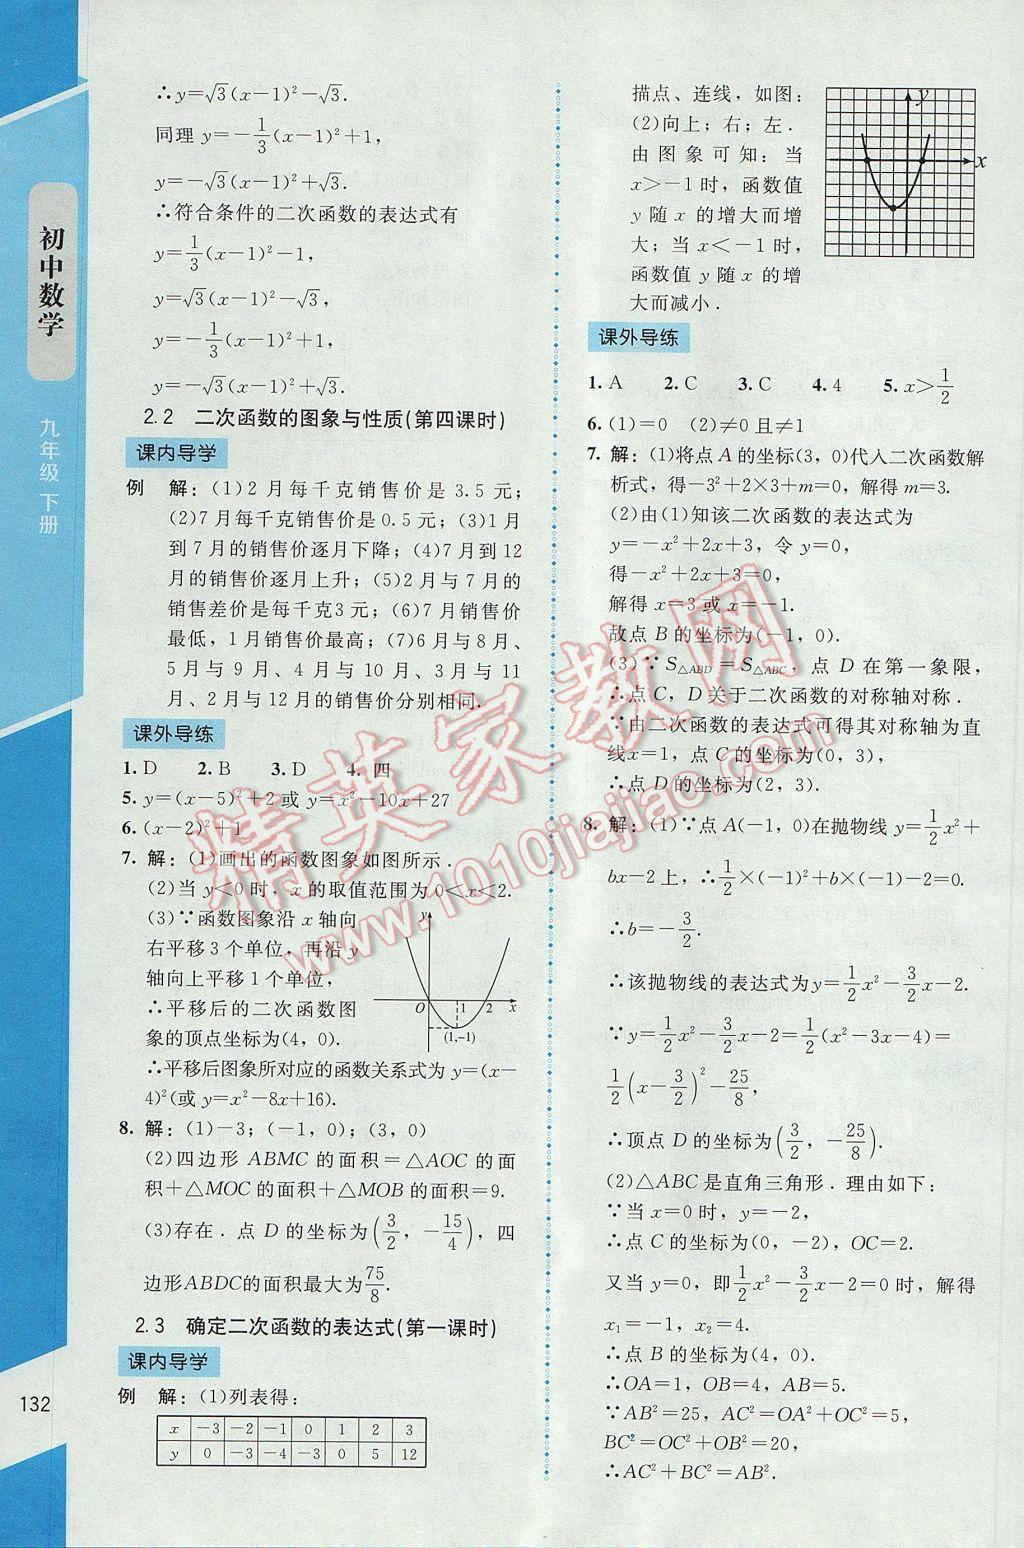 初中数学
九年级 下册
132
∴y=√3(x−1)²−√3.
同理 y=−1/3(x−1)²+1,
y=−√3(x−1)²+√3.
∴符合条件的二次函数的表达式有
y=1/3(x−1)²−1,
y=√3(x−1)²−√3,
y=−1/3(x−1)²+1,
y=−√3(x−1)²+√3.
2.2 二次函数的图象与性质(第四课时)
课内导学
例 解:(1)2月每千克销售价是3.5元;
(2)7月每千克销售价是0.5元;(3)1月
到7月的销售价逐月下降;(4)7月到12
月的销售价逐月上升;(5)2月与7月的
销售差价是每千克3元;(6)7月销售价
最低,1月销售价最高;(7)6月与8月、
5月与9月、4月与10月、3月与11
月、2月与12月的销售价分别相同.
课外导练
1. D 2. B 3. D 4. 四
5. y=(x−5)²+2或y=x²−10x+27
6. (x−2)²+1
7. 解:(1)画出的函数图象如图所示.
(2)当y<0时,x的取值范围为0<x<2.
(3)∵函数图象沿x轴向
右平移3个单位,再沿y
轴向上平移1个单位,
∴平移后的二次函数图
象的顶点坐标为(4,0).
y
O 1 2 x
(1,−1)
∴平移后图象所对应的函数关系式为y=(x−
4)²(或y=x²−8x+16).
8. 解:(1)−3;(−1,0);(3,0)
(2)四边形ABMC的面积=△AOC的面
积+△MOC的面积+△MOB的面积=9.
(3)存在.点D的坐标为(3/2,−15/4),四
边形ABDC的面积最大为75/8.
2.3 确定二次函数的表达式(第一课时)
课内导学
例 解:(1)列表得:
x −3 −2 −1 0 1 2 3
y 0 −3 −4 −3 0 5 12
描点、连线,如图:
(2)向上;右;左.
由图象可知:当
x>−1时,函数值
y随x的增大而增
大;当x<−1时,
函数值y随x的增
大而减小.
y
x
课外导练
1. A 2. C 3. C 4. 4 5. x>1/2
6. (1)=0 (2)≠0且≠1
7. 解:(1)将点A的坐标(3,0)代入二次函数解
析式,得−3²+2×3+m=0,解得m=3.
(2)由(1)知该二次函数的表达式为
y=−x²+2x+3,令y=0,
得−x²+2x+3=0,
解得x=3或x=−1.
故点B的坐标为(−1,0).
(3)∵S△ABD=S△ABC,点D在第一象限,
∴点C,D关于二次函数的对称轴对称.
∵由二次函数的表达式可得其对称轴为直
线x=1,点C的坐标为(0,3),
∴点D的坐标为(2,3).
8. 解:(1)∵点A(−1,0)在抛物线y=1/2x²+
bx−2上,∴1/2×(−1)²+b×(−1)−2=0.
∴b=−3/2.
∴该抛物线的表达式为y=1/2x²−3/2x−2.
∵y=1/2x²−3/2x−2=1/2(x²−3x−4)=
1/2(x−3/2)²−25/8,
∴顶点D的坐标为(3/2,−25/8).
(2)△ABC是直角三角形.理由如下:
∵当x=0时,y=−2,
∴点C的坐标为(0,−2),OC=2.
又当y=0,即1/2x²−3/2x−2=0时,解得
x₁=−1,x₂=4.
∴点B的坐标为(4,0).
∴OA=1,OB=4,AB=5.
∵AB²=25,AC²=OA²+OC²=5,
BC²=OC²+OB²=20,
∴AC²+BC²=AB².
精英家教网
www.1010jiajiao.com